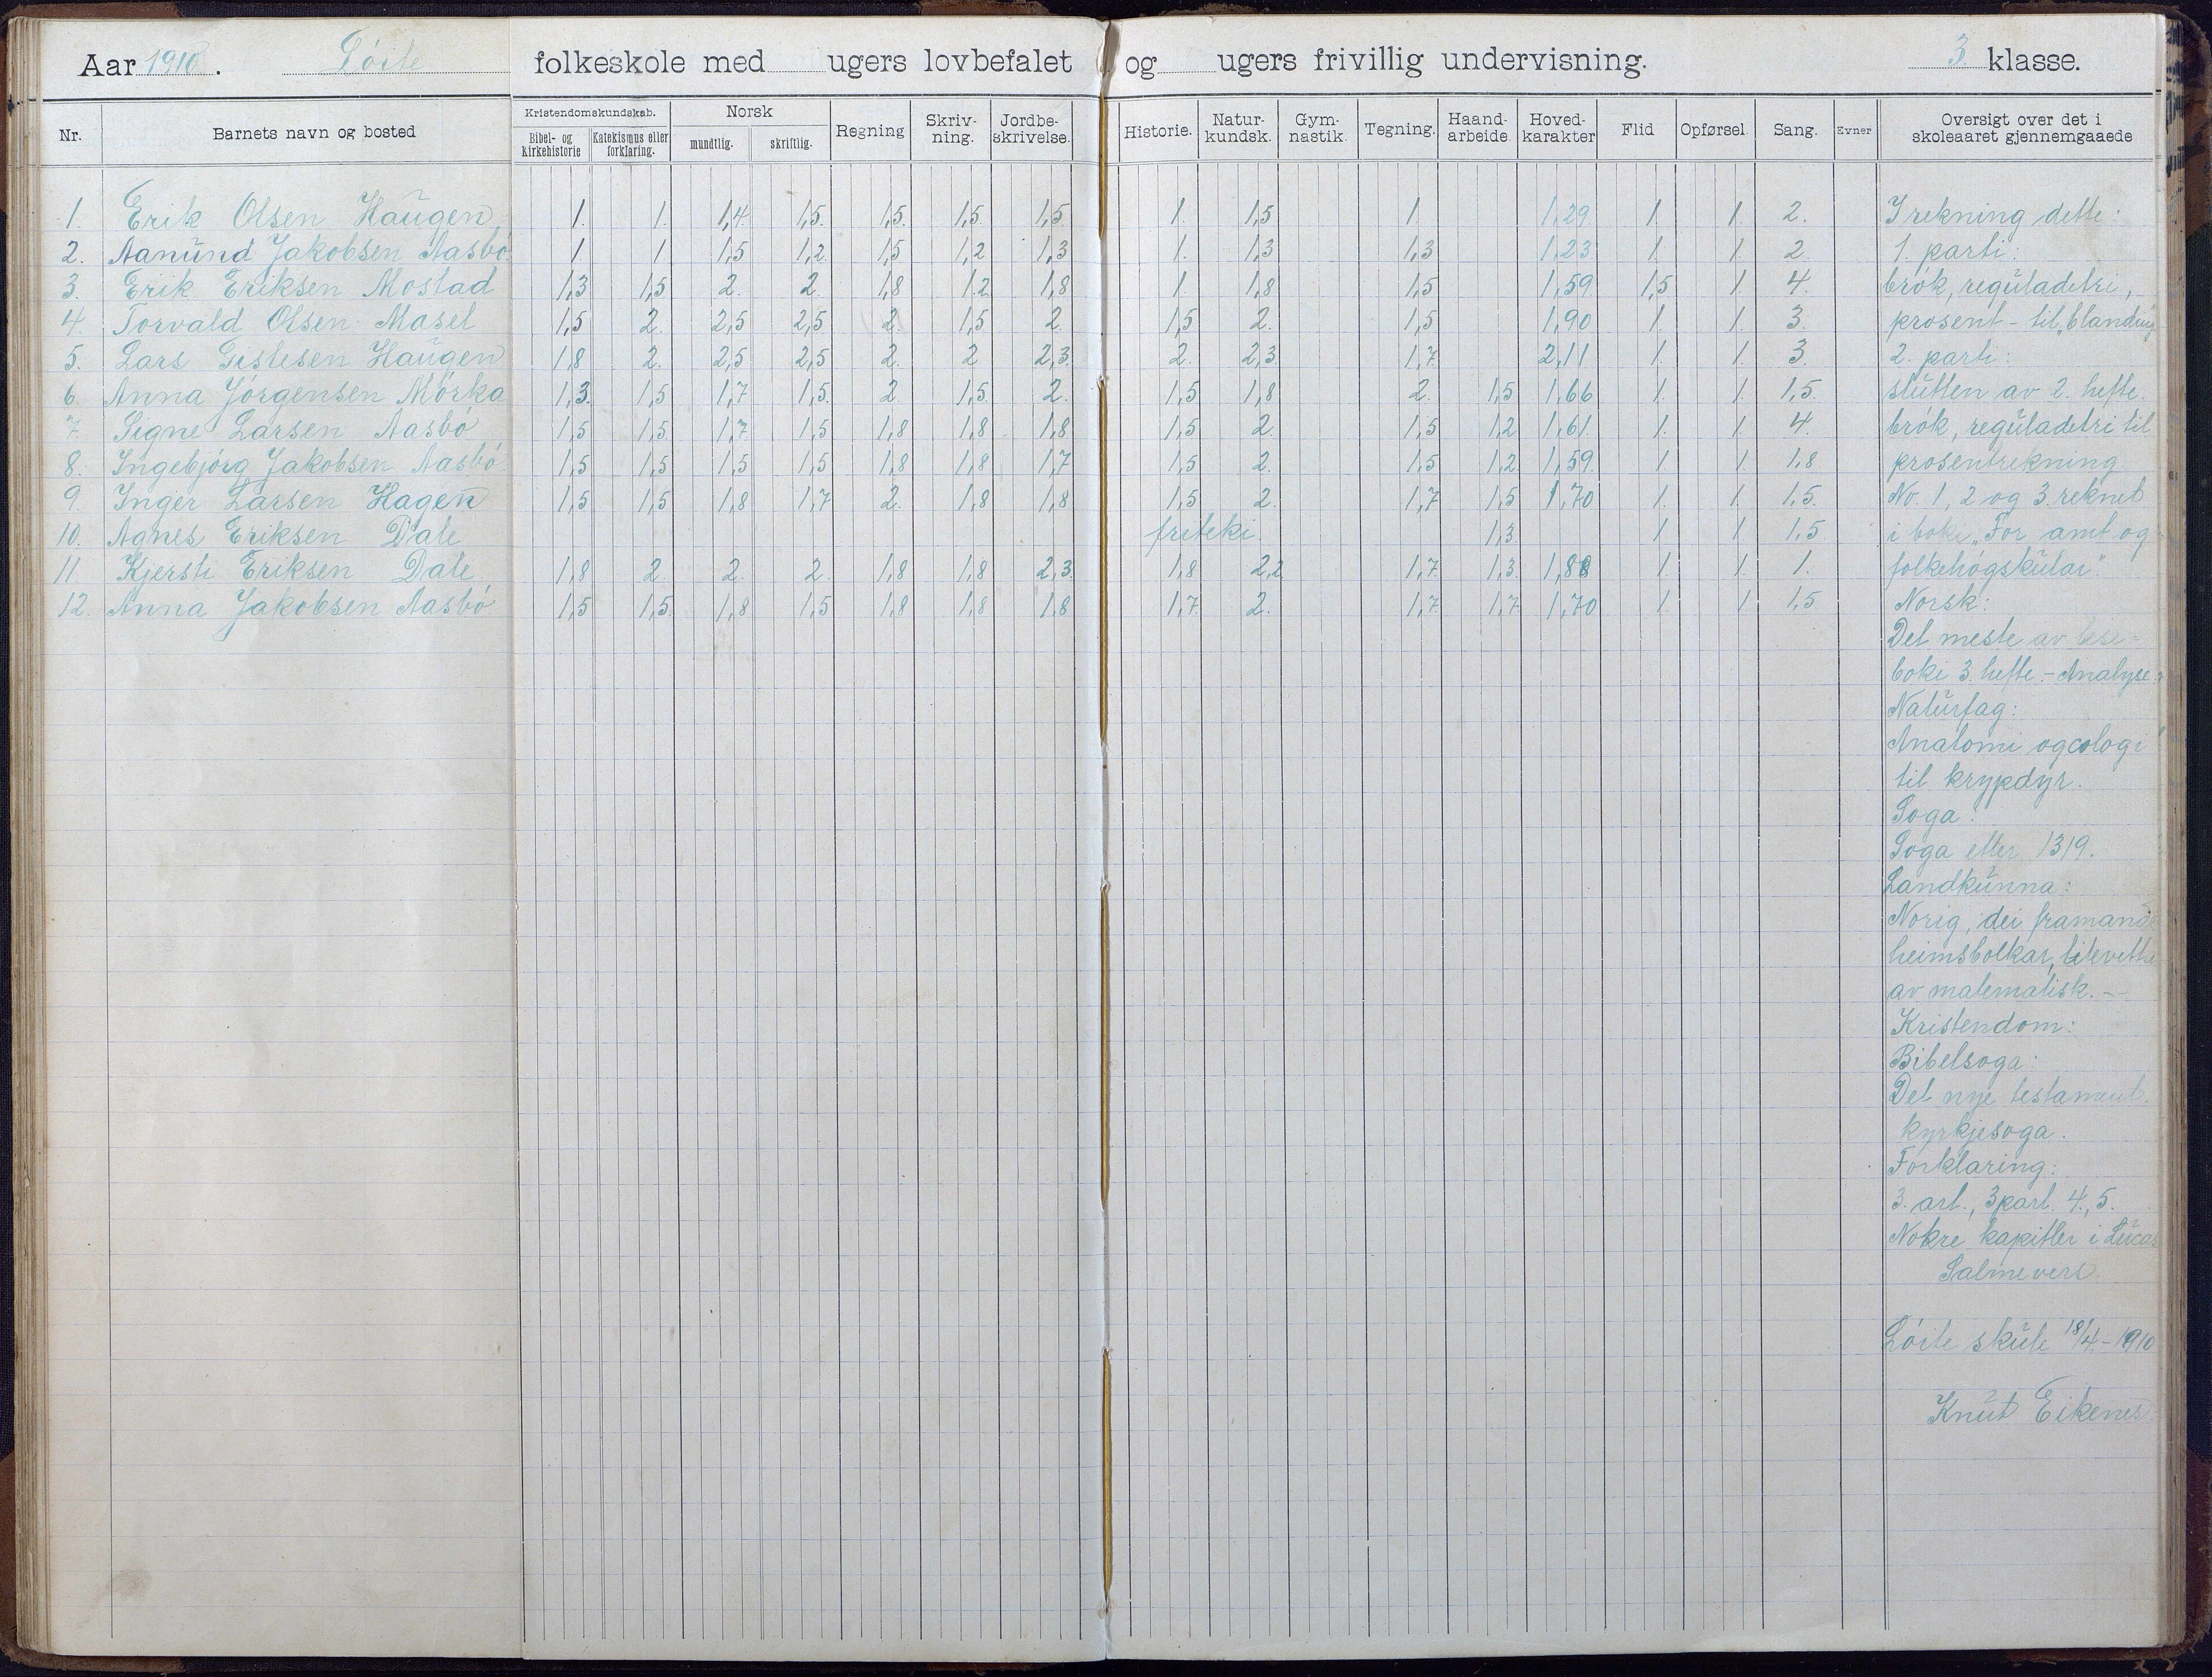 Aar 1910. Löite folkeskole med ugers lovbefalet og ugers frivillig undervisning. 3 klasse.
Nr. Barnets navn og bosted Kristendomskundskab. Bibel- og kirkehistorie Katekismus eller forklaring. Norsk mundtlig. skriftlig. Regning Skriv-ning. Jordbe-skrivelse. Historie. Natur-kundsk. Gym-nastik. Tegning. Haand-arbeide. Hoved-karakter Flid Opførsel. Sang. Evner Oversigt over det i skoleaaret gjennemgaaede
1. Erik Olsen Haugen 1. 1. 1,4 1,5. 1,5. 1,5. 1,5 1. 1,5 1 1,29 1. 1. 2. I rekning dette:
2. Aanund Jakobsen Aasbö. 1. 1 1,5 1,2. 1,5 1,2 1,3 1. 1,3 1,3 1,23 1. 1. 2 1. parti:
3. Erik Eriksen Mostad 1,3 1,5 2. 2. 1,8 1.2 1,8 1 1,8 1,5 1,59 1,5 1. 4. brök, reguladetri,
4. Torvald Olsen Masel 1,5 2. 2,5 2,5 2. 1,5 2. 1,5 2. 1,5 1,90 1. 1. 3. prosent - til „blanding
5. Lars Gislesen Haugen 1,8 2. 2,5 2,5 2. 2 2,3. 2. 2,3 1,7. 2,11 1. 1. 3. 2. parti:
6. Anna Jörgensen Mörka 1,3. 1,5 1,7 1,5. 2. 1,5. 2. 1,5 1,8 2. 1,5 1,66 1. 1. 1,5. slutten av 2. hefte.
7 Signe Larsen Aasbö 1,5 1,5. 1,7. 1,5 1,8 1,8 1,8 1,5 2. 1,5 1,2 1,61. 1. 1. 4. brök, reguladetri til
8. Ingebjörg Jakobsen Aasbö. 1,5 1,5 1,5 1,5 1,8 1,8 1,7 1,5 2. 1,5 1,2 1,59. 1. 1. 1,8. prosentrekning.
9. Inger Larsen Hagen 1,5 1,5 1,8 1,7 2. 1,8 1,8 1,5 2. 1,7 1,5 1,70 1. 1. 1,5. No. 1, 2 og 3. reknet
10. Agnes Eriksen Dale friteki. 1,3. 1 1. 1,5 i boki „For amt og
11. Kjersti Eriksen Dale 1,8 2. 2. 2. 1,8 1,8 2,3. 1,8 2,2 1,7. 1,3. 1,88 1. 1. 1. folkehögskular".
12. Anna Jakobsen Aasbö 1,5 1,5. 1,8 1,5 1,8 1,8 1,8 1,7. 2. 1,7 1,7. 1,70 1. 1. 1,5. Norsk:
Det meste av lese-
boki 3. hefte. - Analyse.
Naturfag:
Anatomi og zologi
til krypdyr.
Soga:
Soga etter 1319.
Landkunna:
Norig, dei framande
heimsbolkar, litevetta
av matematisk. -
Kristendom:
Bibelsoga:
Det nye testament.
kyrkjesoga.
Forklaring:
3. art., 3 part. 4., 5.
Nokre kapitler i Lucas
Salmevers.
Löite skule 18/4 - 1910
Knut Eikenes